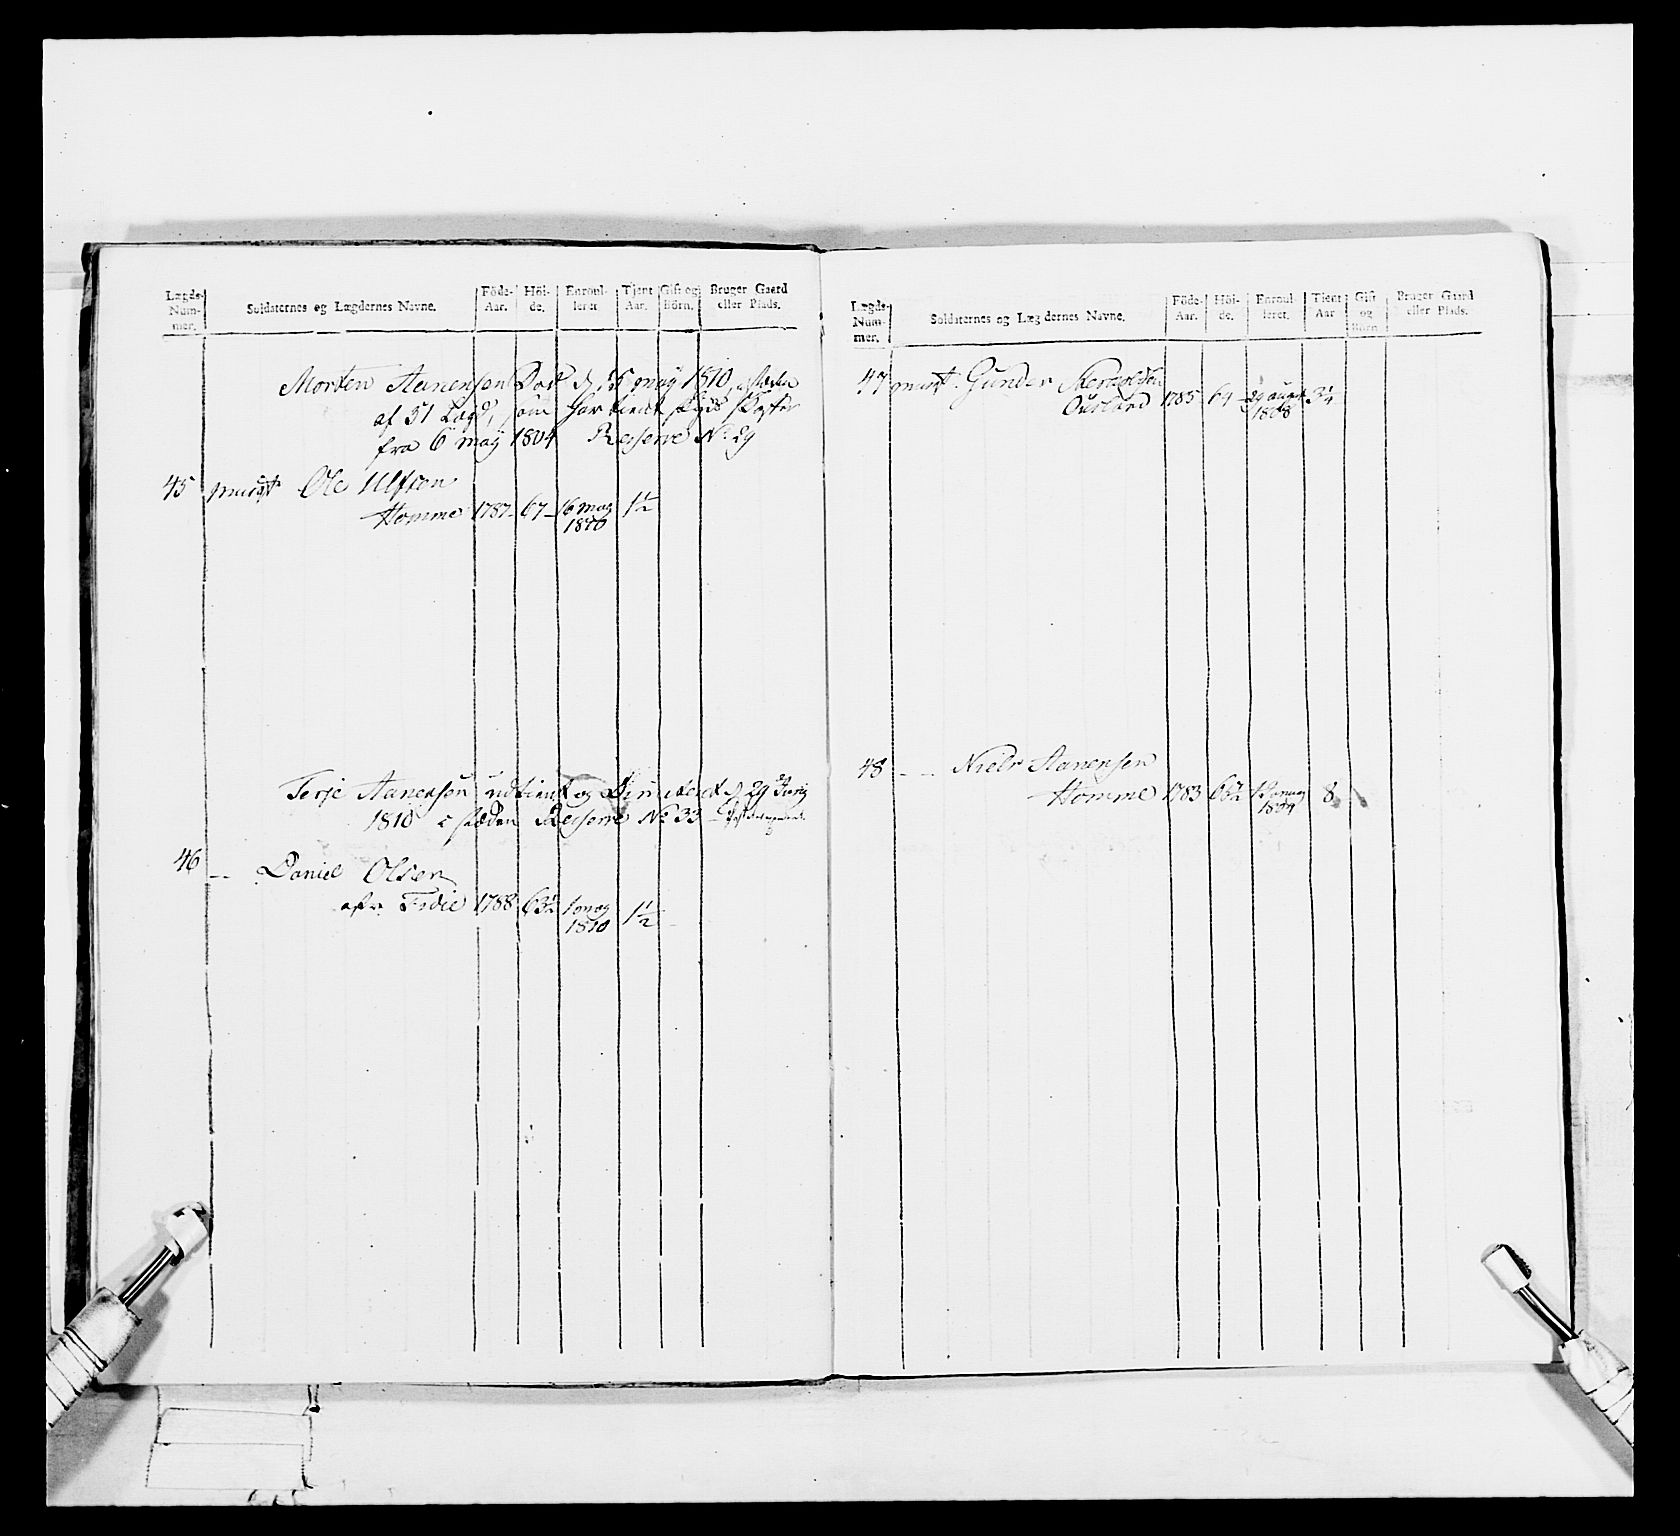 Lægds- Num- mer.
Soldaternes og Lægdernes Navne.
Föde- Aar.
Höi- de.
Enroul- leret
Tjent Aar.
Gift og Börn.
Bruger Gaard eller Plads.
Morten Aanensen Död d 15 may 1810,
af 51 Lægd, som har tient
fra 6 may 1804 Reserve No 29
45 musqt Ole Ulfsen
Homme 1787 - 67 - 16 may 1810 1½
Terje Aanensen udtient og Dimiteret d 29 Juny
1810 i stæden Reserve No 33
46 - - Daniel Olsen
1788 63½ 1 may 1810 1½
Lægds- Num- mer.
Soldaternes og Lægdernes Navne.
Föde- Aar.
Höi- de.
Enroul- leret.
Tjent Aar
Gift og Börn
Bruger Gaard eller Plads.
47 musqt. Gunder
1785 64 29 augt 1808 3¼
48 - - Niels Aanensen
Homme 1783 66½ 1804 8